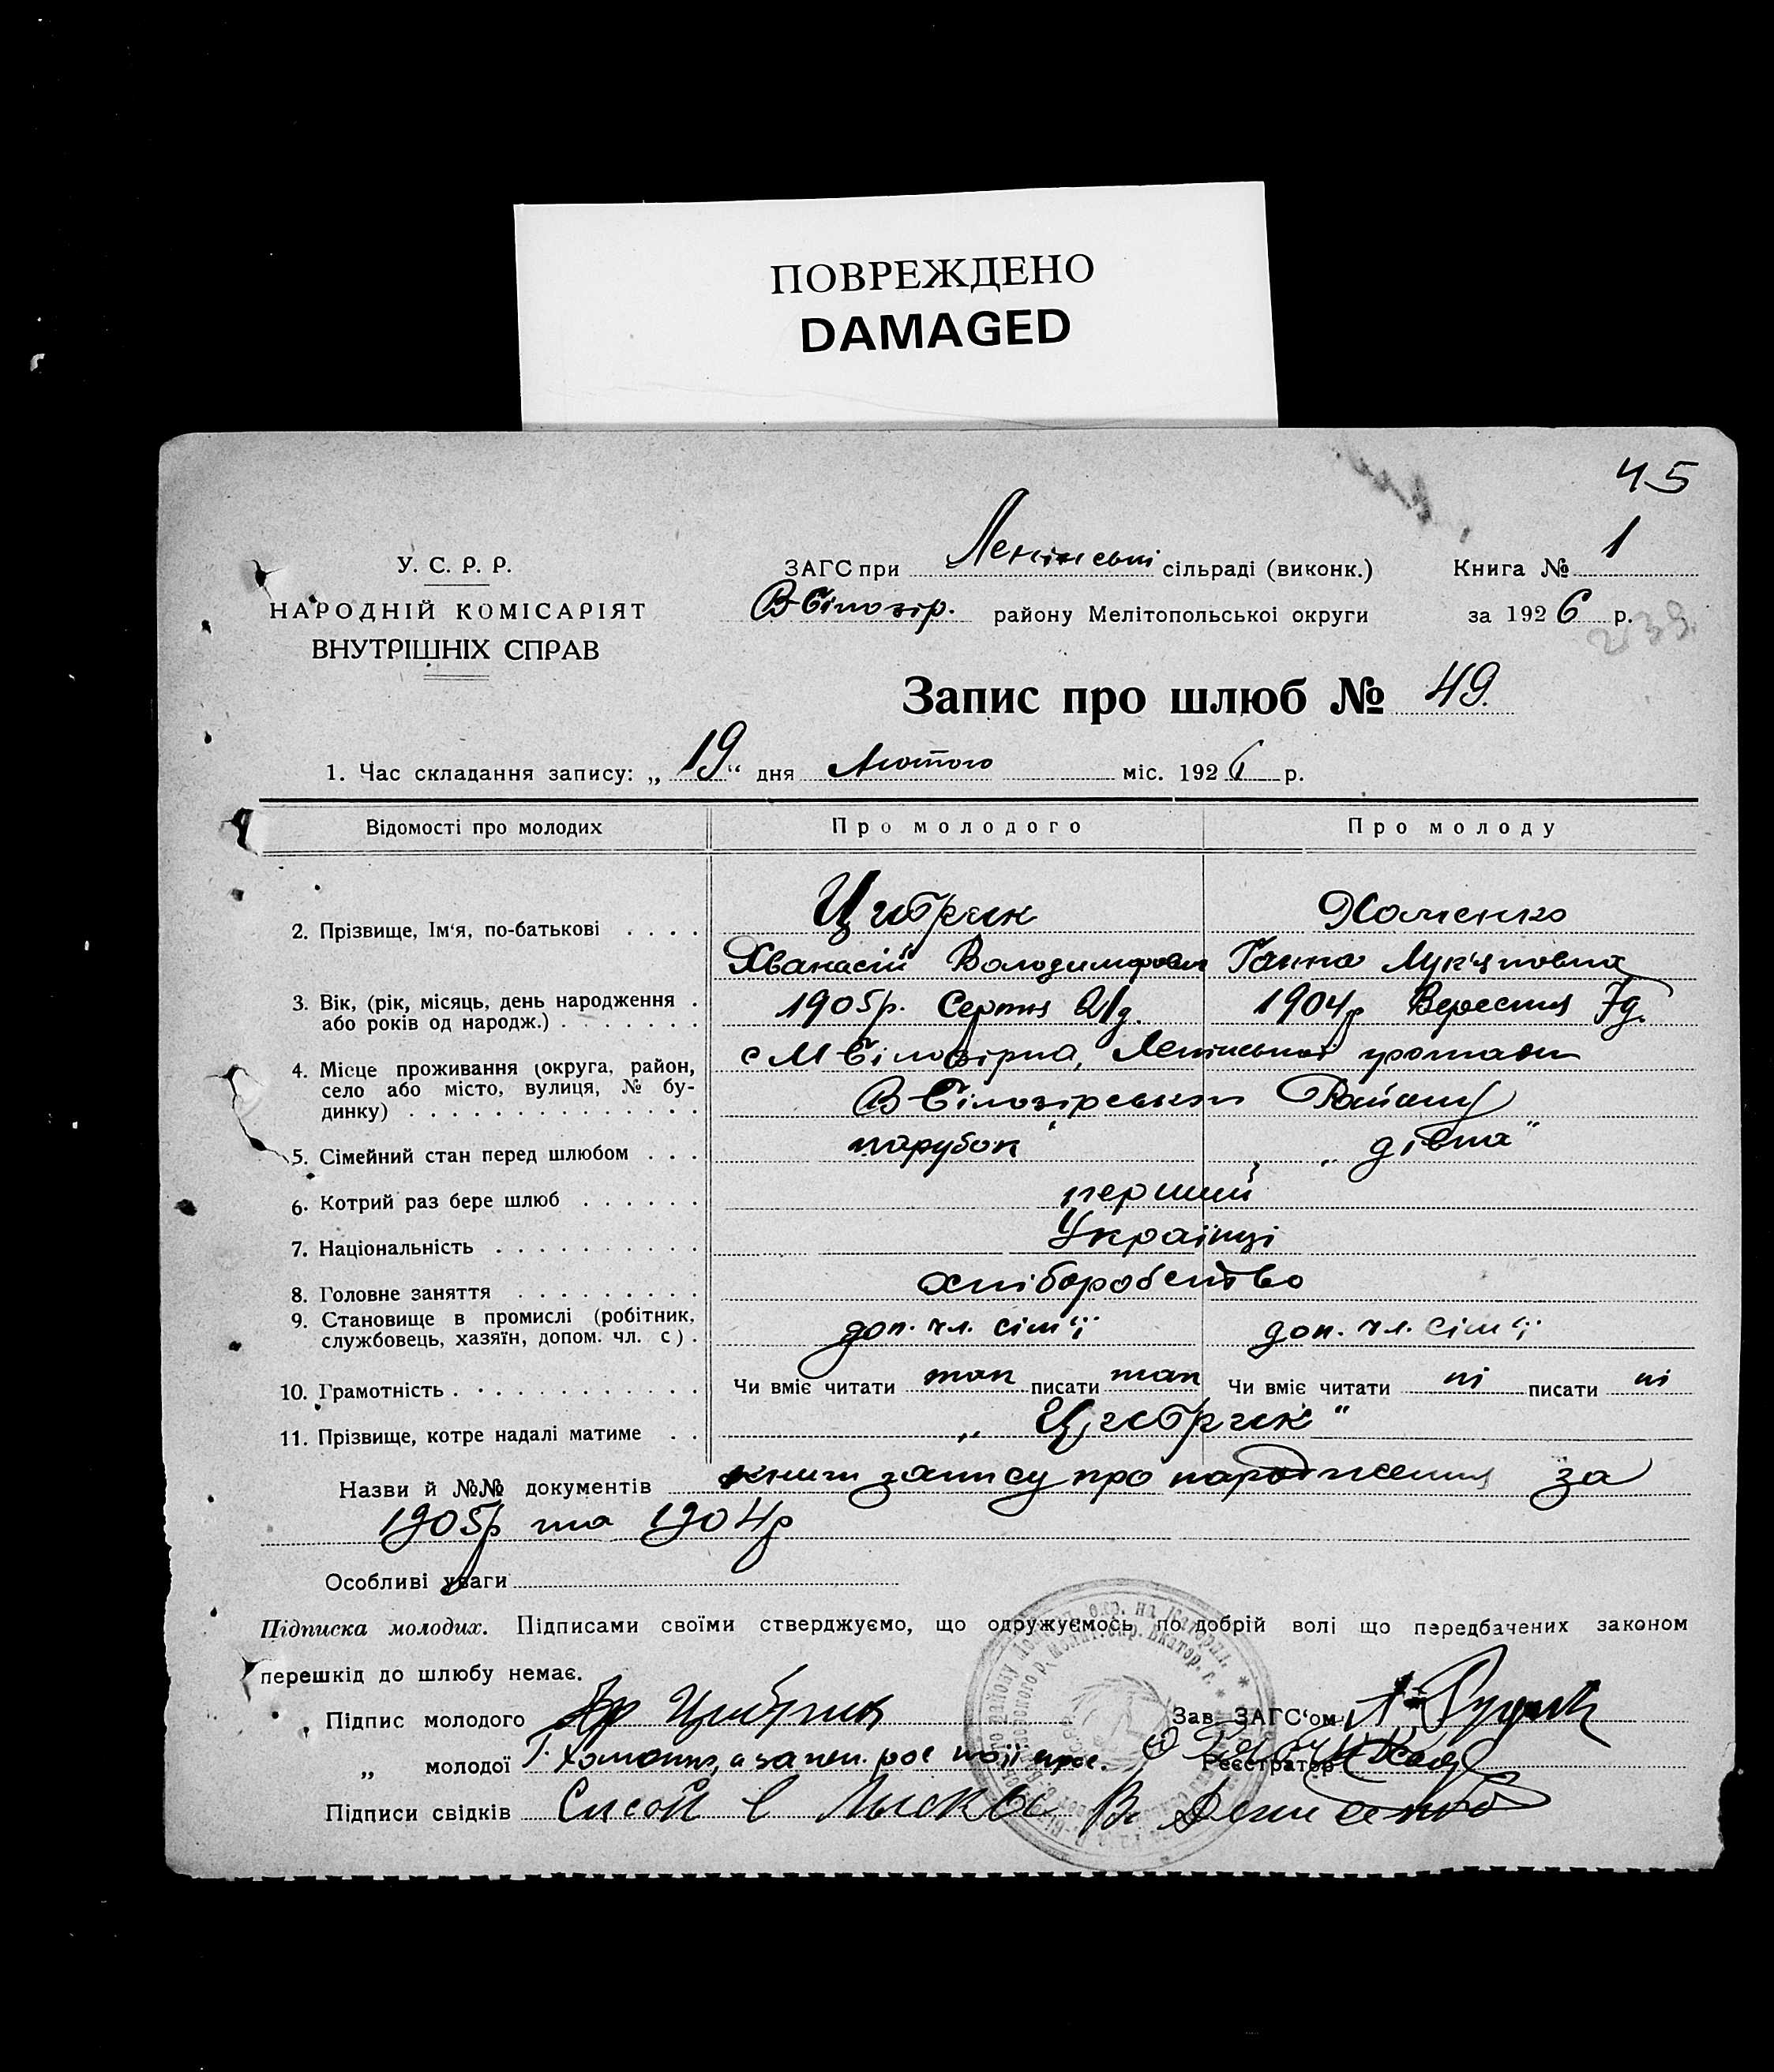 ПОВРЕЖДЕНО
DAMAGED
45
У. С. Р. Р.
НАРОДНІЙ КОМІСАРІЯТ
ВНУТРІШНІХ СПРАВ
ЗАГС при Ленінські сільраді (виконк.)
В-Білозір. району Мелітопольської округи
Книга № 1
за 1926 р.
239.
Запис про шлюб № 49.
1. Час складання запису: „19“ дня Лютого міс. 1926 р.
Відомості про молодих Про молодого Про молоду
2. Прізвище, Ім'я, по-батькові . . . . Цибрик Хоменко
Хванасій Володимирович Ганна Лук'яновна
3. Вік, (рік, місяць, день народження . або років од народж.) . . . . . . . 1905р. Серпня 21д. 1904р Вересня 7д.
4. Місце проживання (округа, район, село або місто, вулиця, № будинку) . . . . . . . . . . . . . . с М Білозірка, Ленінської громади
В-Білозірського Району
5. Сімейний стан перед шлюбом . . . парубок „дівка"
6. Котрий раз бере шлюб . . . . . . перший
7. Національність . . . . . . . . . . Українці
8. Головне заняття . . . . . . . . . хліборобство
9. Становище в промислі (робітник, службовець, хазяїн, допом. чл. с) . доп. чл. сім'ї доп. чл. сім'ї
10. Грамотність . . . . . . . . . . . . Чи вміє читати так писати так Чи вміє читати ні писати ні
11. Прізвище, котре надалі матиме . . „Цибрик"
Назви й №№ документів книги запису про народження за
1905р та 1904р
Особливі уваги
Підписка молодих. Підписами своїми стверджуємо, що одружуємось по добрій волі що передбачених законом
перешкід до шлюбу немає.
Підпис молодого Цибрик Зав. ЗАГС'ом
„ молодої Г. Хоменко, а за неї Реєстратор
Підписи свідків